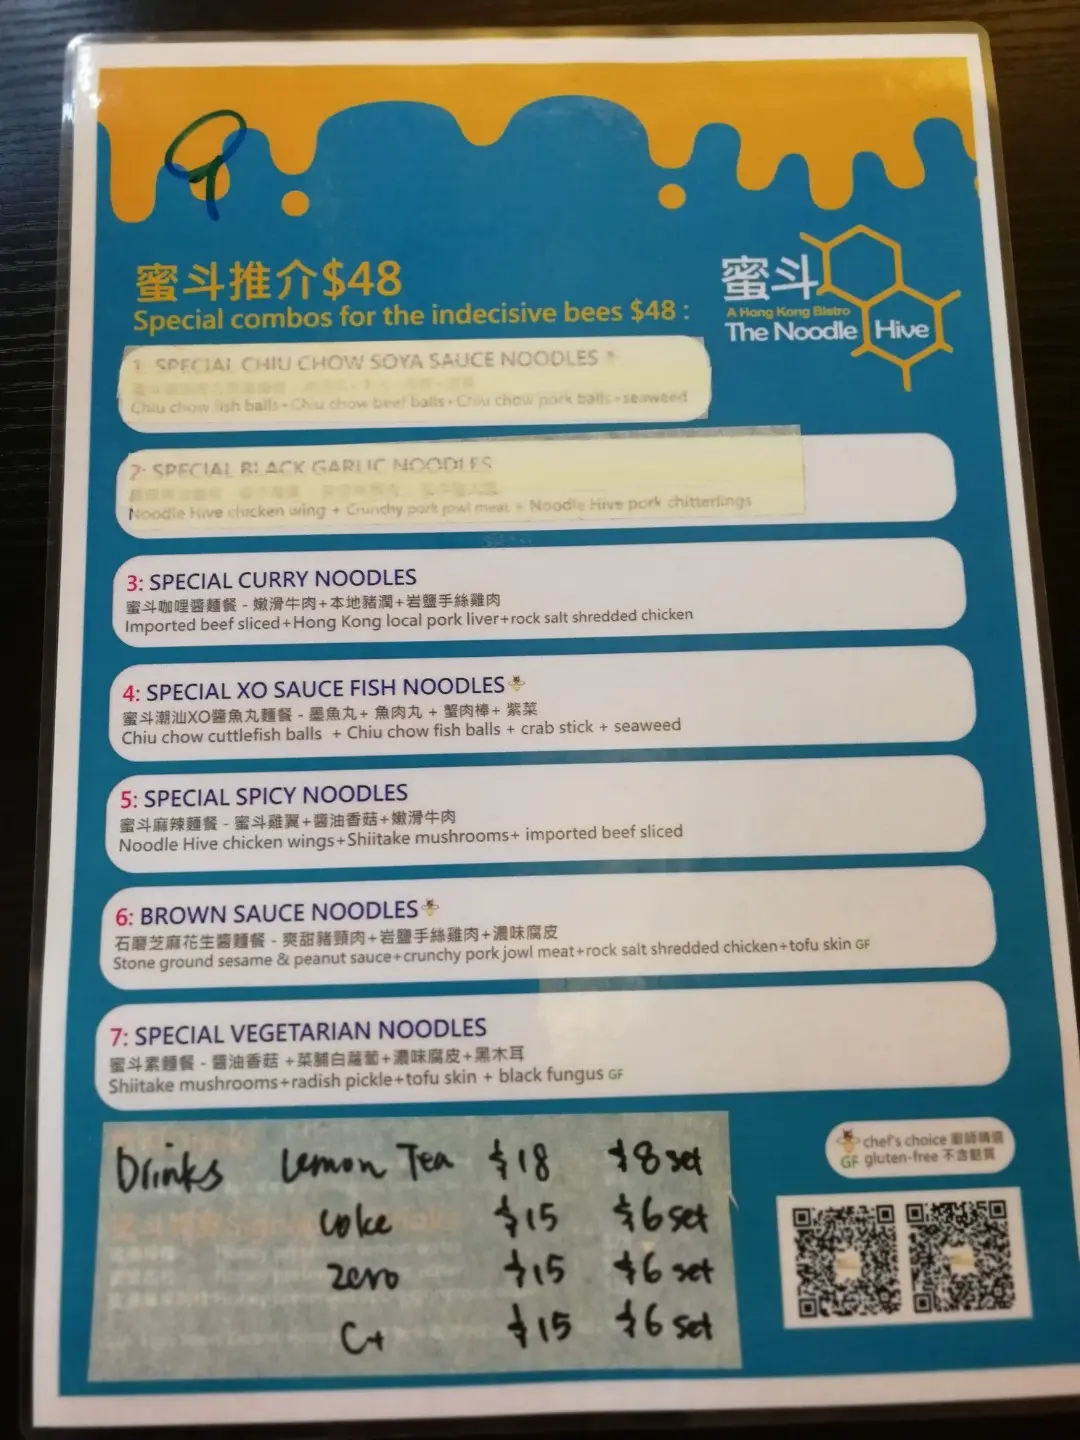 9
蜜斗推介$48
Special combos for the indecisive bees $48 :
蜜斗
A Hong Kong Bistro
The Noodle Hive
1: SPECIAL CHIU CHOW SOYA SAUCE NOODLES
Chiu chow fish balls+Chiu chow beef balls+Chiu chow pork balls+seaweed
2: SPECIAL BLACK GARLIC NOODLES
Noodle Hive chicken wing + Crunchy pork jowl meat + Noodle Hive pork chitterlings
3: SPECIAL CURRY NOODLES
蜜斗咖哩醬麵餐 - 嫩滑牛肉+本地豬潤+岩鹽手絲雞肉
Imported beef sliced+Hong Kong local pork liver+rock salt shredded chicken
4: SPECIAL XO SAUCE FISH NOODLES
蜜斗潮汕XO醬魚丸麵餐 - 墨魚丸+ 魚肉丸 + 蟹肉棒+ 紫菜
Chiu chow cuttlefish balls + Chiu chow fish balls + crab stick + seaweed
5: SPECIAL SPICY NOODLES
蜜斗麻辣麵餐 - 蜜斗雞翼+醬油香菇+嫩滑牛肉
Noodle Hive chicken wings+Shiitake mushrooms+ imported beef sliced
6: BROWN SAUCE NOODLES
石磨芝麻花生醬麵餐 - 爽甜豬頸肉+岩鹽手絲雞肉+濃味腐皮
Stone ground sesame & peanut sauce+crunchy pork jowl meat+rock salt shredded chicken+tofu skin GF
7: SPECIAL VEGETARIAN NOODLES
蜜斗素麵餐 - 醬油香菇 +菜脯白蘿蔔+濃味腐皮+黑木耳
Shiitake mushrooms+radish pickle+tofu skin + black fungus GF
chef's choice 廚師精選
GF gluten-free 不含麩質
Drinks Lemon Tea $18 $8 set
coke $15 $6 set
zero $15 $6 set
C+ $15 $6 set